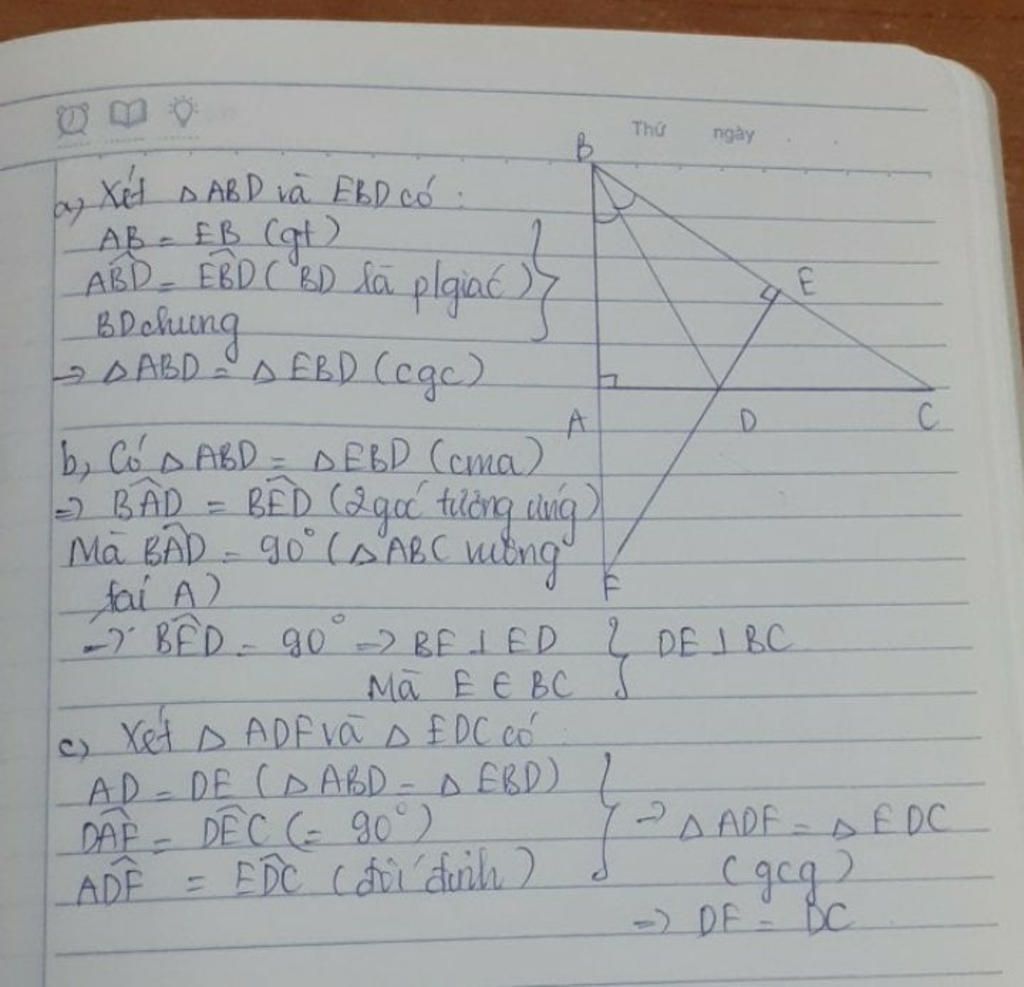 Thứ ngày
B
a, Xét △ABD và EBD có:
AB = EB (gt)
ABD̂ = EBD̂ ( BD là p/giác)
BD chung
E
=> △ABD = △EBD (cgc)
A D C
b, Có △ABD = △EBD (cma)
=> BÂD = BÊD (2 góc tương ứng)
Mà BÂD = 90° (△ABC vuông
F
tại A)
=> BÊD = 90° => BE ⊥ ED } DE ⊥ BC
Mà E ∈ BC
c, Xét △ADF và △EDC có
AD = DE (△ABD = △EBD)
DÂF = DÊC (= 90°) => △ADF = △EDC
AD̂F = ED̂C (đối đỉnh) (gcg)
=> DF = DC